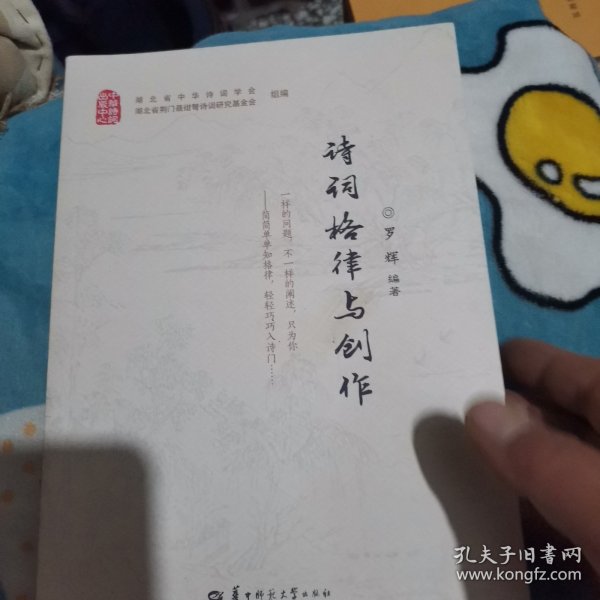 中华诗词
出版中心
湖北省中华诗词学会
湖北省荆门聂绀弩诗词研究基金会
组编
诗词格律与创作
◎罗辉 编著
一样的问题，不一样的阐述，只为你
——简简单单知格律，轻轻巧巧入诗门……
华中师范大学出版社
孔夫子旧书网
www.kongfz.com